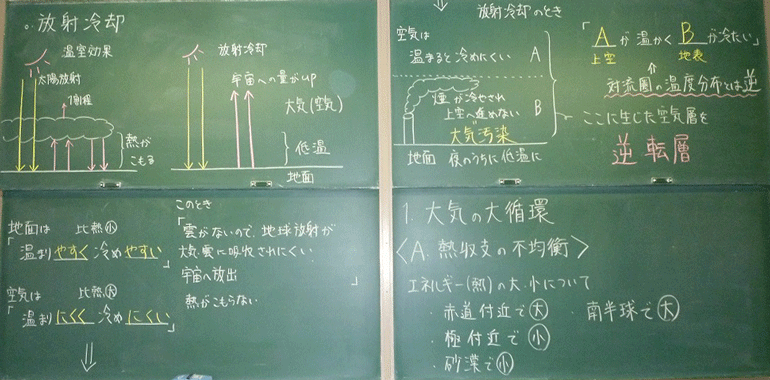 ○. 放射冷却
温室効果
太陽放射
1割程
熱が
こもる
放射冷却
宇宙への量がup
大気(空気)
低温
地面
地面は 比熱小
「温まりやすく冷めやすい」
空気は 比熱大
「温まりにくく冷めにくい」
⇓
このとき
「雲がないので、地球放射が
大気、雲に吸収されにくい
宇宙へ放出
熱がこもらない 」
⇓ 放射冷却のとき
空気は
温まると冷めにくい A
煙が冷やされ
上空へ進めない B
大気汚染
地面 夜のうちに低温に
「Aが温かくBが冷たい」
上空 地表
⇑
対流圏の温度分布とは逆
ここに生じた空気層を
逆転層
1. 大気の大循環
〈A. 熱収支の不均衡〉
エネルギー(熱)の大、小について
・赤道付近で大 ・南半球で大
・極付近で小
・砂漠で小